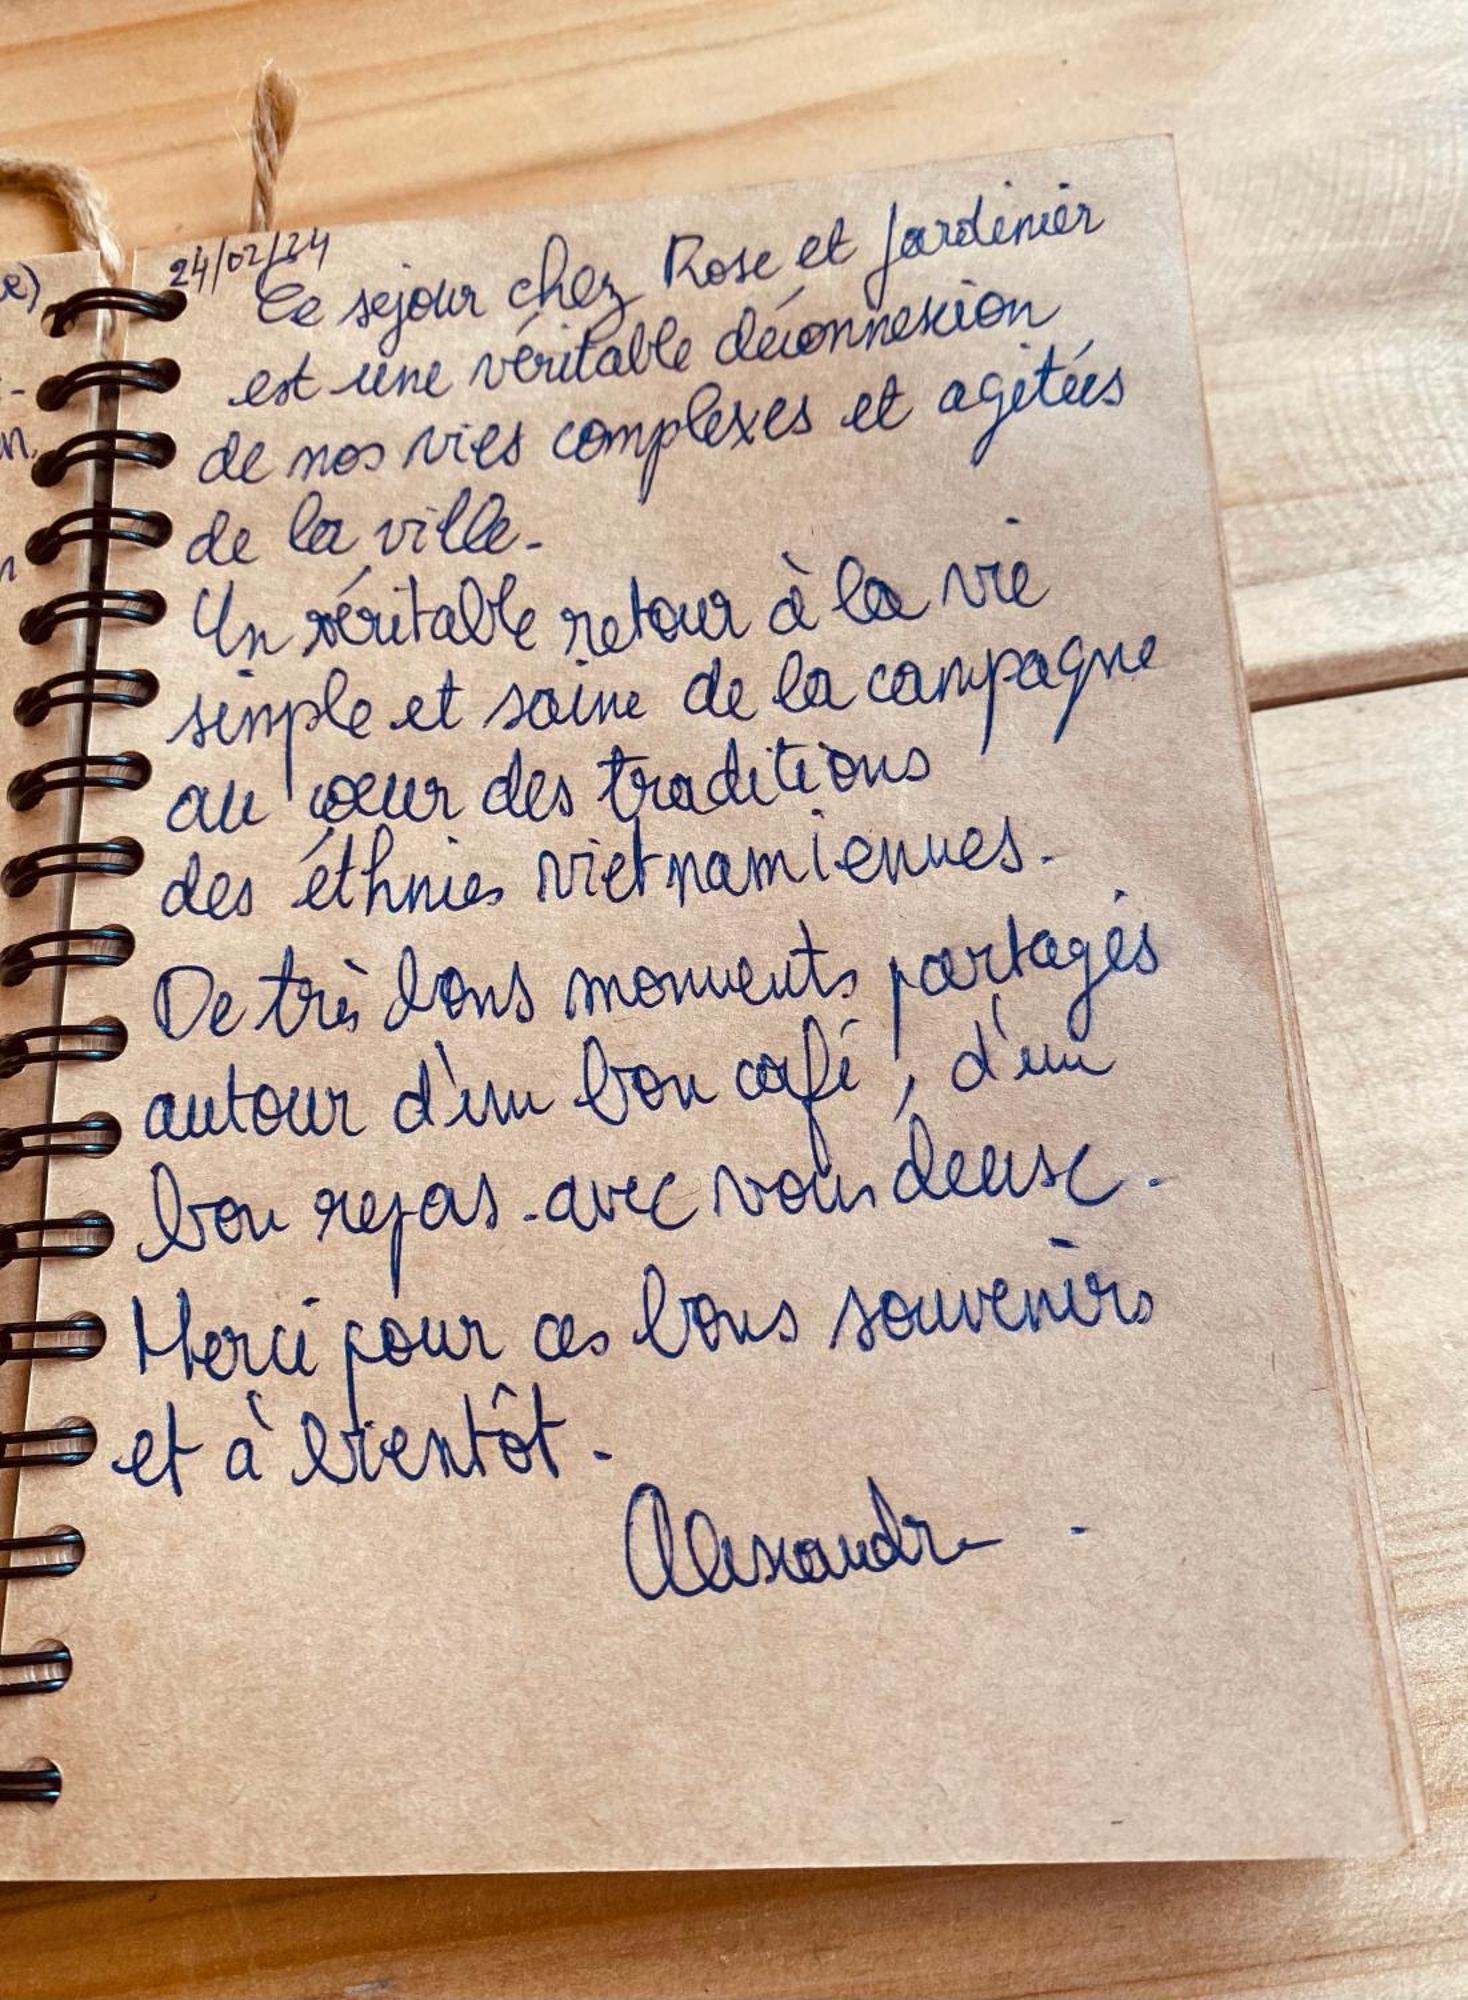 e)
n.
n
24/02/24
Ce séjour chez Rose et Jardinier
est une véritable déconnexion
de nos vies complexes et agitées
de la ville.
Un véritable retour à la vie
simple et saine de la campagne
au cœur des traditions
des éthnies vietnamiennes.
De très bons moments partagés
autour d'un bon café, d'un
bon repas avec vous deux.
Merci pour ces bons souvenirs
et à bientôt.
Alexandre